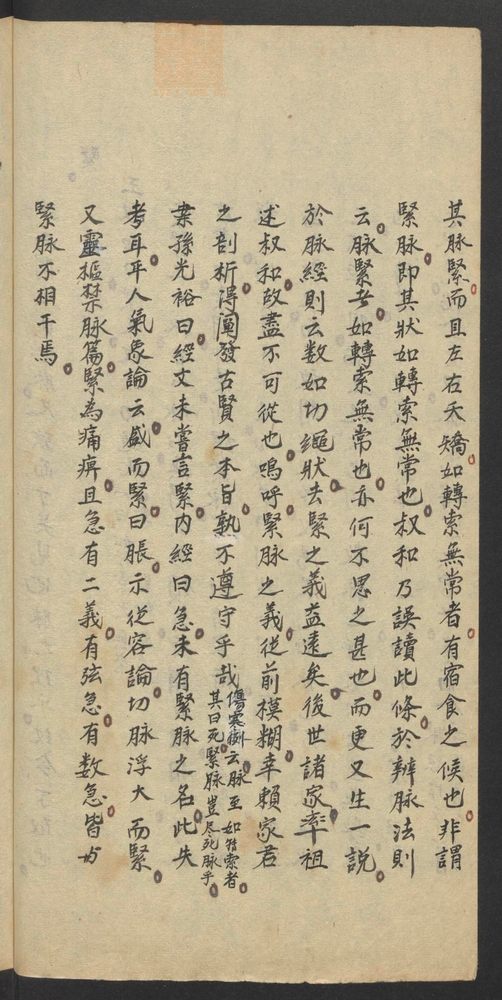 其脉緊而且左右夭矯如轉索無常者有宿食之候也非謂
緊脉即其狀如轉索無常也叔和乃誤讀此條於辨脉法則
云脉緊者如轉索無常也亦何不思之甚也而更又生一說
於脉經則云数如切繩狀去緊之義益遠矣後世諸家率祖
述叔和故盡不可從也嗚呼緊脉之義從前模糊幸賴家君
之剖析得闡發古賢之本旨孰不遵守乎哉傷寒例云脉至如轉索者
其日死緊脉豈尽死脉乎
案孫光裕曰經文未嘗言緊内經曰急未有緊脉之名此失
考耳平人氣象論云盛而緊曰脹示從容論切脉浮大而緊
又靈樞禁脉篇緊為痛痹且急有二義有弦急有数急皆与
緊脉不相干焉